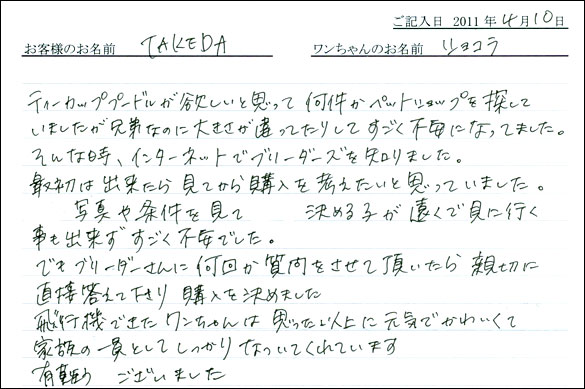 ご記入日 2011 年 4 月 10 日
お客様のお名前 TAKEDA ワンちゃんのお名前 ショコラ
ティーカッププードルが欲しいと思って 何件かペットショップを探して
いましたが兄弟なのに大きさが違ってたりして すごく不安になってました。
そんな時、インターネットでブリーダーズを知りました。
最初は出来たら 見てから購入を考えたいと思っていました。
写真や条件を見て 決める子が遠くで見に行く
事も出来ず すごく不安でした。
でもブリーダーさんに 何回か質問をさせて頂いたら 親切に
直接答えて下さり 購入を決めました
飛行機できた ワンちゃんは 思った以上に元気でかわいくて
家族の一員としてしっかりなついてくれています
有難う ございました